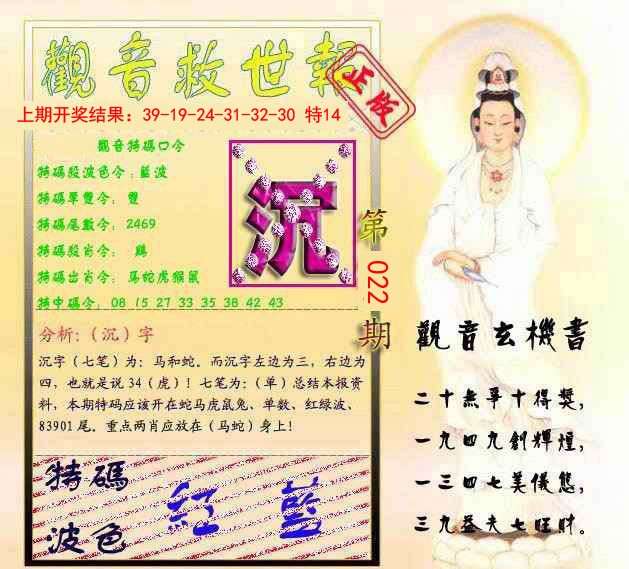 觀音救世報
正版
上期开奖结果：39-19-24-31-32-30 特14
觀音特碼口令
特碼殺波色令：藍波
特碼單雙令：雙
特碼尾數令：2469
特碼殺肖令： 鷄
特碼出肖令：馬蛇虎猴鼠
特中碼令：08 15 27 33 35 38 42 43
沉
第
022
期
分析:（沉）字
沉字（七笔）为：马和蛇。而沉字左边为三，右边为
四，也就是说34（虎）！七笔为：（单）总结本报资
料，本期特码应该开在蛇马虎鼠兔、单数、红绿波、
83901尾。重点两肖应放在（马蛇）身上！
特碼
波色
紅 藍
觀音玄機書
二十無爭十得獎，
一九四九創輝煌，
一三四七美儀態，
三九益夫七旺财。